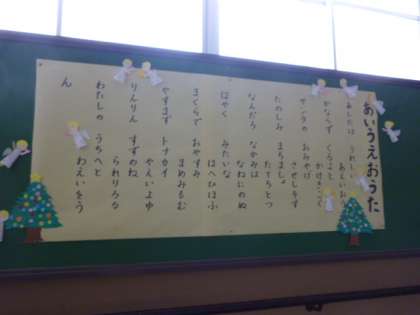 あいうえおうた
あしたは うれし あえいおう
かならず くるよと かけきこく
サンタの おみやげ させしそす
たのしみ まちましょ たてちとつ
なんだろ なかみは なねにのぬ
はやく みたいな はへひほふ
まくらで おやすみ まめみもむ
やすまず トナカイ やえいよゆ
りんりん すずのね られりろる
わたしの うちへと わえいをう
ん